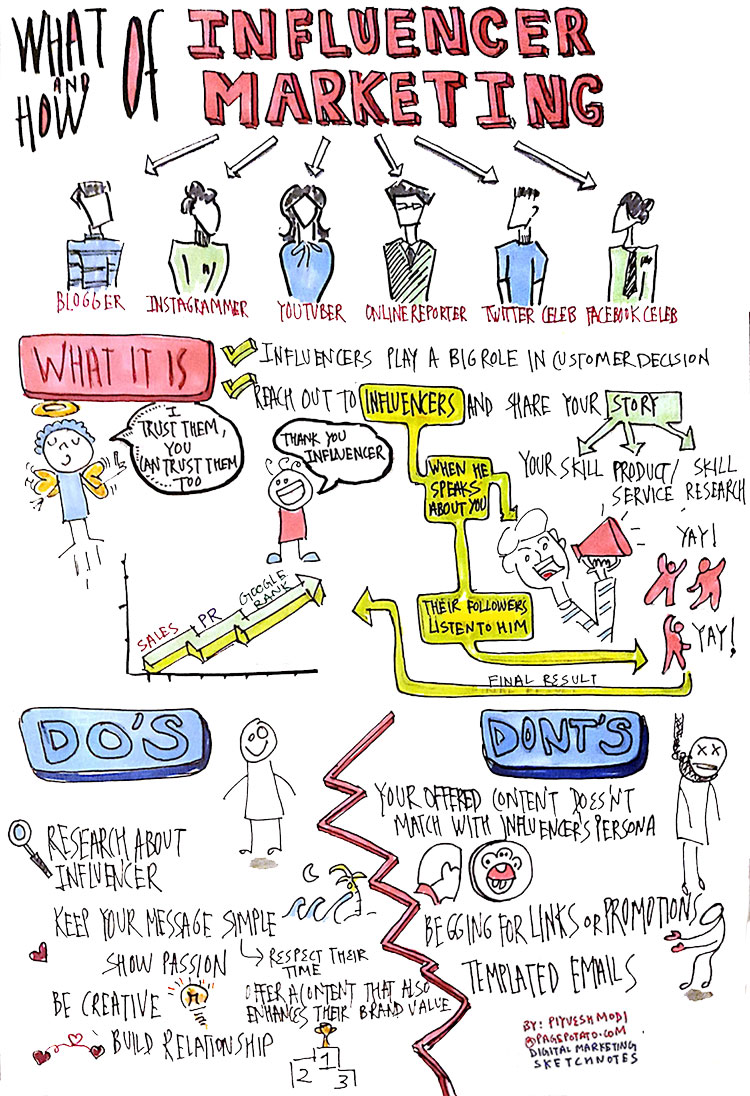 WHAT
AND
HOW
OF
INFLUENCER
MARKETING
BLOGGER
INSTAGRAMMER
YOUTUBER
ONLINE REPORTER
TWITTER CELEB
FACEBOOK CELEB
WHAT IT IS
INFLUENCERS PLAY A BIG ROLE IN CUSTOMER DECISION
REACH OUT TO INFLUENCERS AND SHARE YOUR STORY
I
TRUST THEM,
YOU
CAN TRUST THEM
TOO
THANK YOU
INFLUENCER
WHEN HE
SPEAKS
ABOUT YOU
YOUR SKILL
PRODUCT/
SERVICE
SKILL
RESEARCH
YAY!
YAY!
THEIR FOLLOWERS
LISTEN TO HIM
FINAL RESULT
SALES
PR
GOOGLE
RANK
DO'S
RESEARCH ABOUT
INFLUENCER
KEEP YOUR MESSAGE SIMPLE
SHOW PASSION
RESPECT THEIR
TIME
BE CREATIVE
OFFER A CONTENT THAT ALSO
ENHANCES THEIR BRAND VALUE
BUILD RELATIONSHIP
1
2
3
DONT'S
YOUR OFFERED CONTENT DOES'NT
MATCH WITH INFLUENCER'S PERSONA
BEGGING FOR LINKS OR PROMOTIONS
TEMPLATED EMAILS
BY: PIYVESH MODI
@PAGEPOTATO.COM
DIGITAL MARKETING
SKETCHNOTES